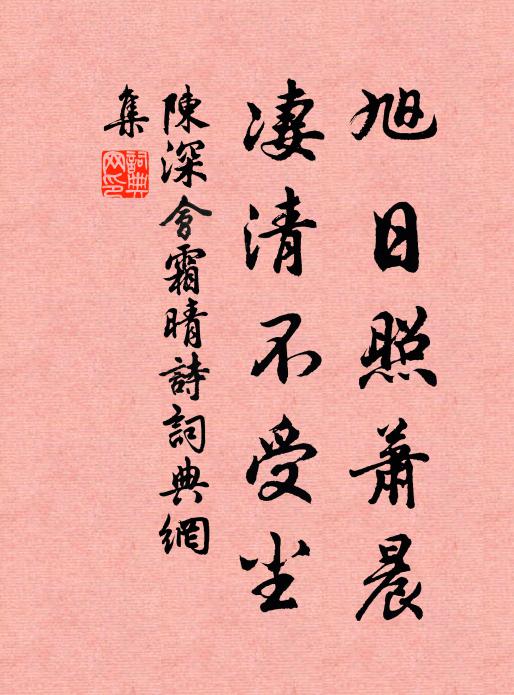 旭日照蕭晨
淒清不受尘
陳深會霜晴詩詞典網
集
詞典
网印